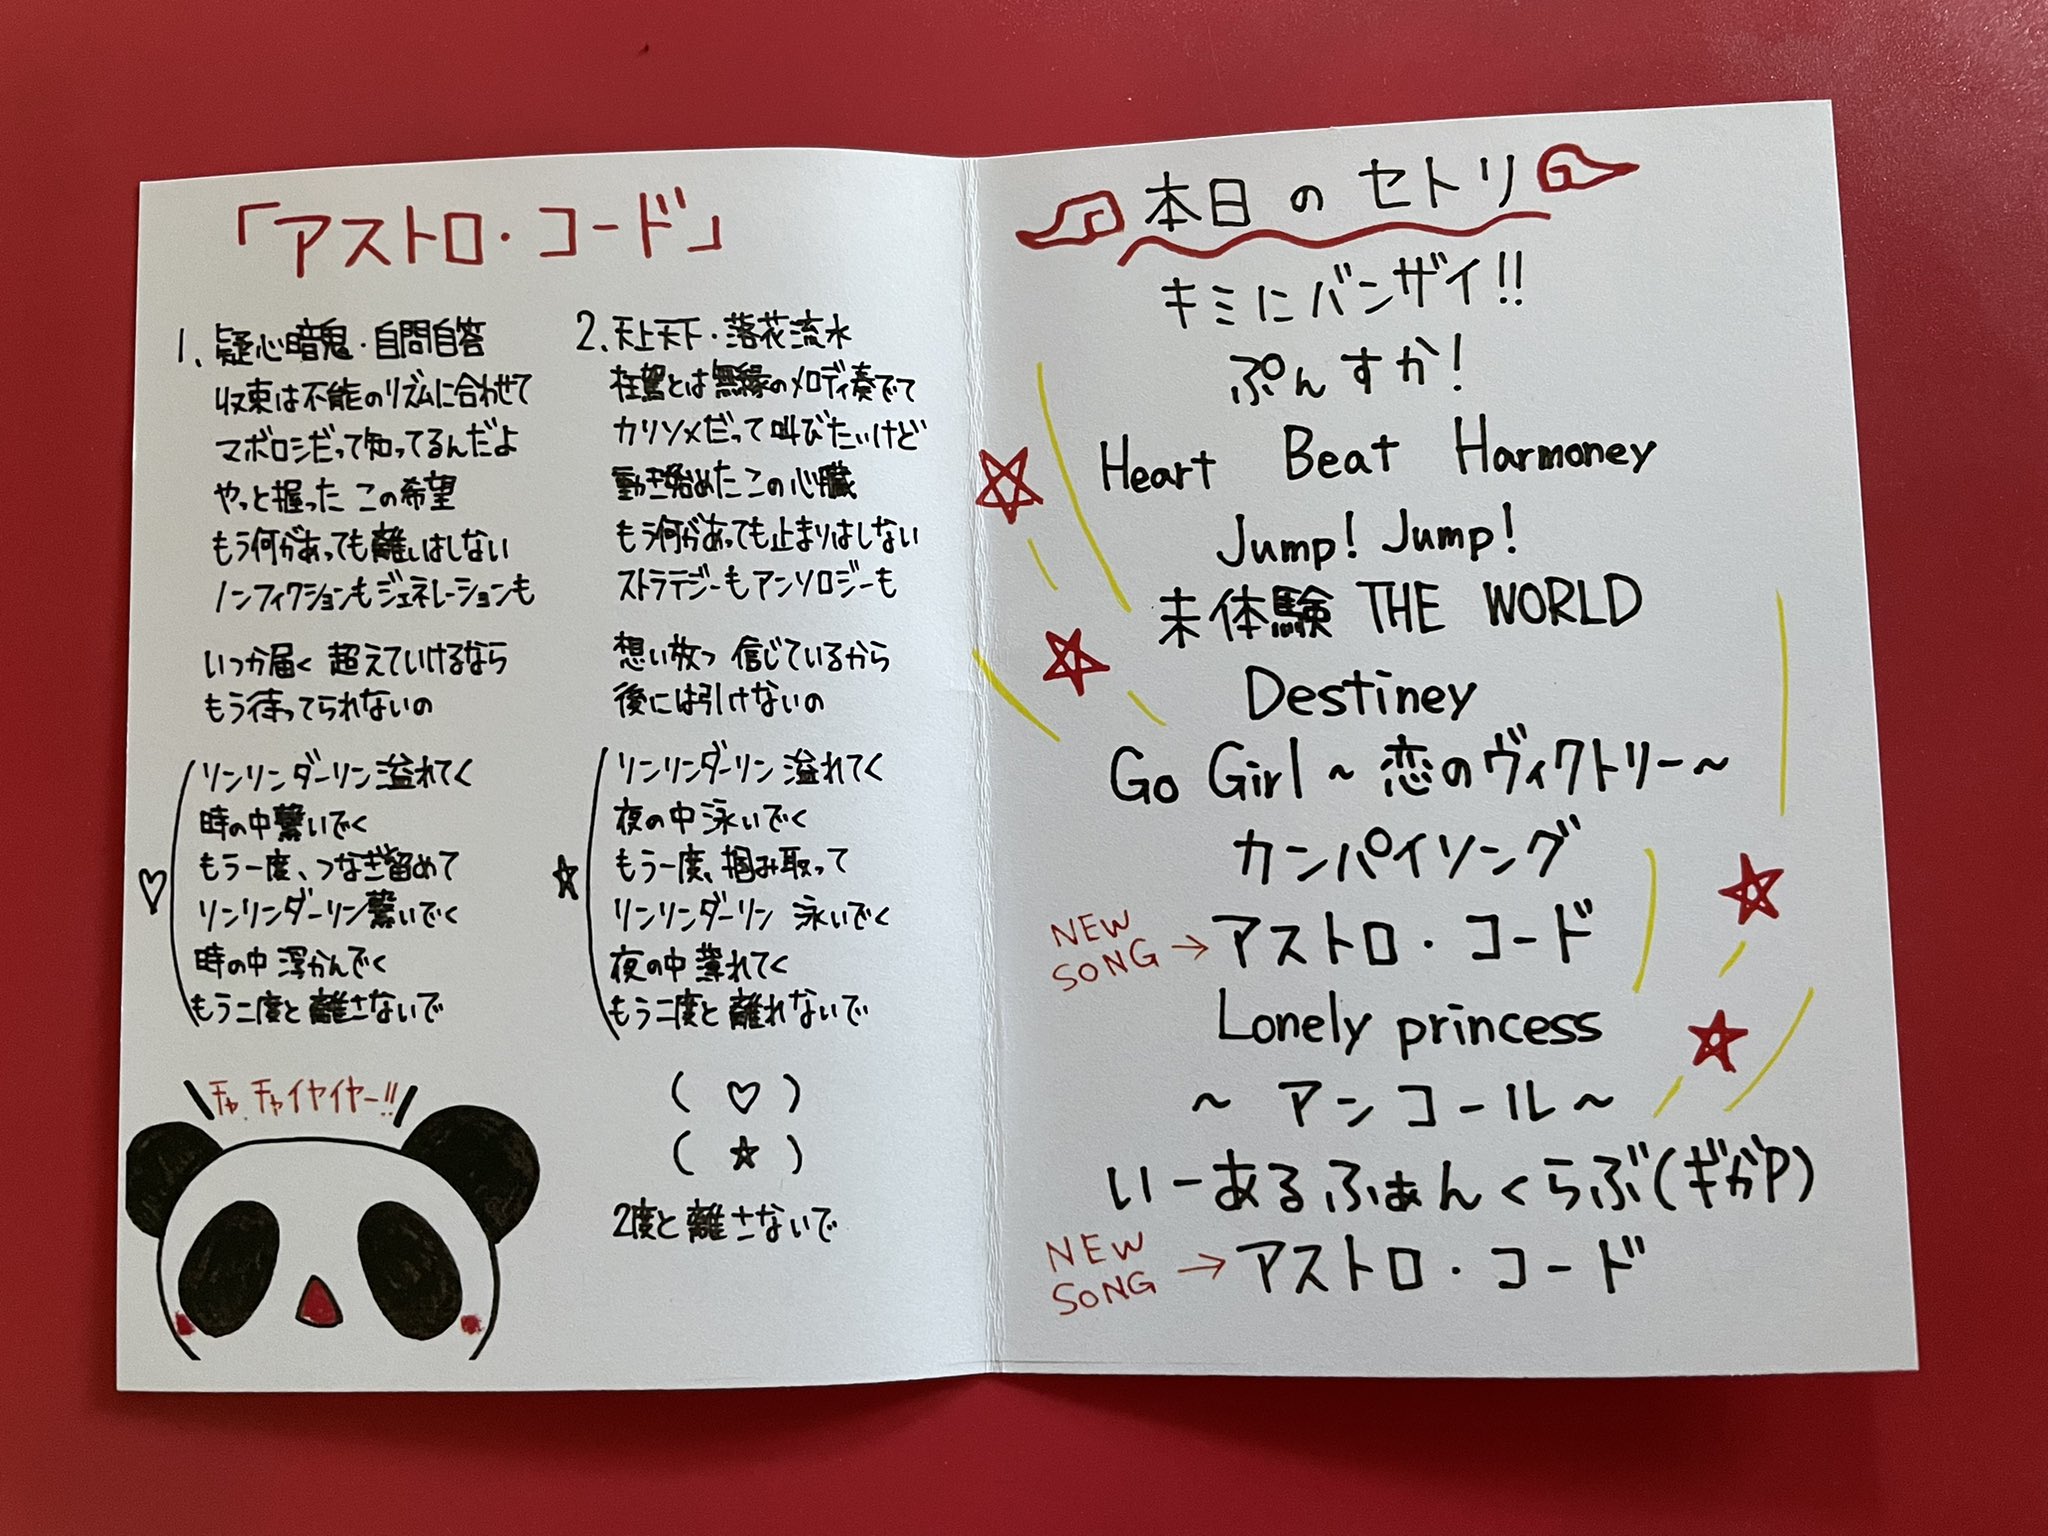 「アストロ・コード」
1. 疑心暗鬼・自問自答
収束は不能のリズムに合わせて
マボロシだって知ってるんだよ
やっと握った この希望
もう何があっても離しはしない
ノンフィクションもジェネレーションも
いつか届く 超えていけるなら
もう待ってられないの
♡
リンリンダーリン 溢れてく
時の中繋いでく
もう一度、つなぎ留めて
リンリンダーリン繋いでく
時の中 浮かんでく
もう二度と 離さないで
チャ チャイヤイヤー!!
2. 天上天下・落花流水
枉駕とは無縁のメロディ奏でて
カリソメだって叫びたいけど
動き始めたこの心臓
もう何があっても止まりはしない
ストラテジーもアンソロジーも
想い放つ 信じているから
後には引けないの
☆
リンリンダーリン 溢れてく
夜の中 泳いでく
もう一度、掴み取って
リンリンダーリン 泳いでく
夜の中 業れてく
もう二度と 離れないで
( ♡ )
( ☆ )
2度と離さないで
本日のセトリ
キミにバンザイ!!
ぷんすか!
Heart Beat Harmoney
Jump! Jump!
未体験 THE WORLD
Destiney
Go Girl ~ 恋のヴィクトリー~
カンパイソング
NEW SONG → アストロ・コード
Lonely princess
~ アンコール ~
いーあるふぁんくらぶ(ギガP)
NEW SONG → アストロ・コード